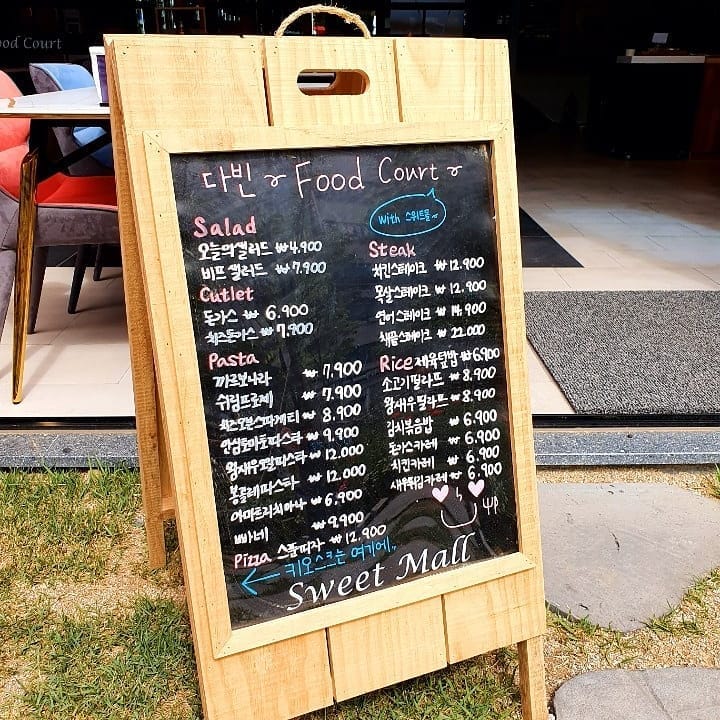 ood Court
다빈 ~ Food Court ~
with 스위트몰
Salad
오늘의샐러드 ₩4,900
비프샐러드 ₩7,900
Cutlet
돈가스 ₩6,900
치즈돈가스 ₩7,900
Pasta
까르보나라 ₩7,900
쉬림프로제 ₩7,900
치즈오븐스파게티 ₩8,900
안심토마토파스타 ₩9,900
왕새우오일파스타 ₩12,000
봉골레파스타 ₩12,000
아마트리치아나 ₩6,900
빠네 ₩9,900
Pizza 스톰피자 ₩12,900
Steak
치킨스테이크 ₩12,900
목살스테이크 ₩12,900
연어스테이크 ₩14,900
채끝스테이크 ₩22,000
Rice 제육덮밥 ₩6,900
소고기필라프 ₩8,900
왕새우필라프 ₩8,900
김치볶음밥 ₩6,900
돈가스카레 ₩6,900
치킨카레 ₩6,900
새우튀김카레 ₩6,900
← 키오스크는 여기에..
Sweet Mall